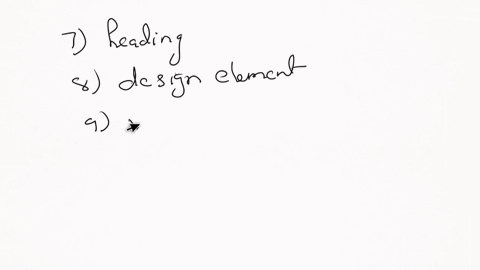 7) heading
8) design element
9)